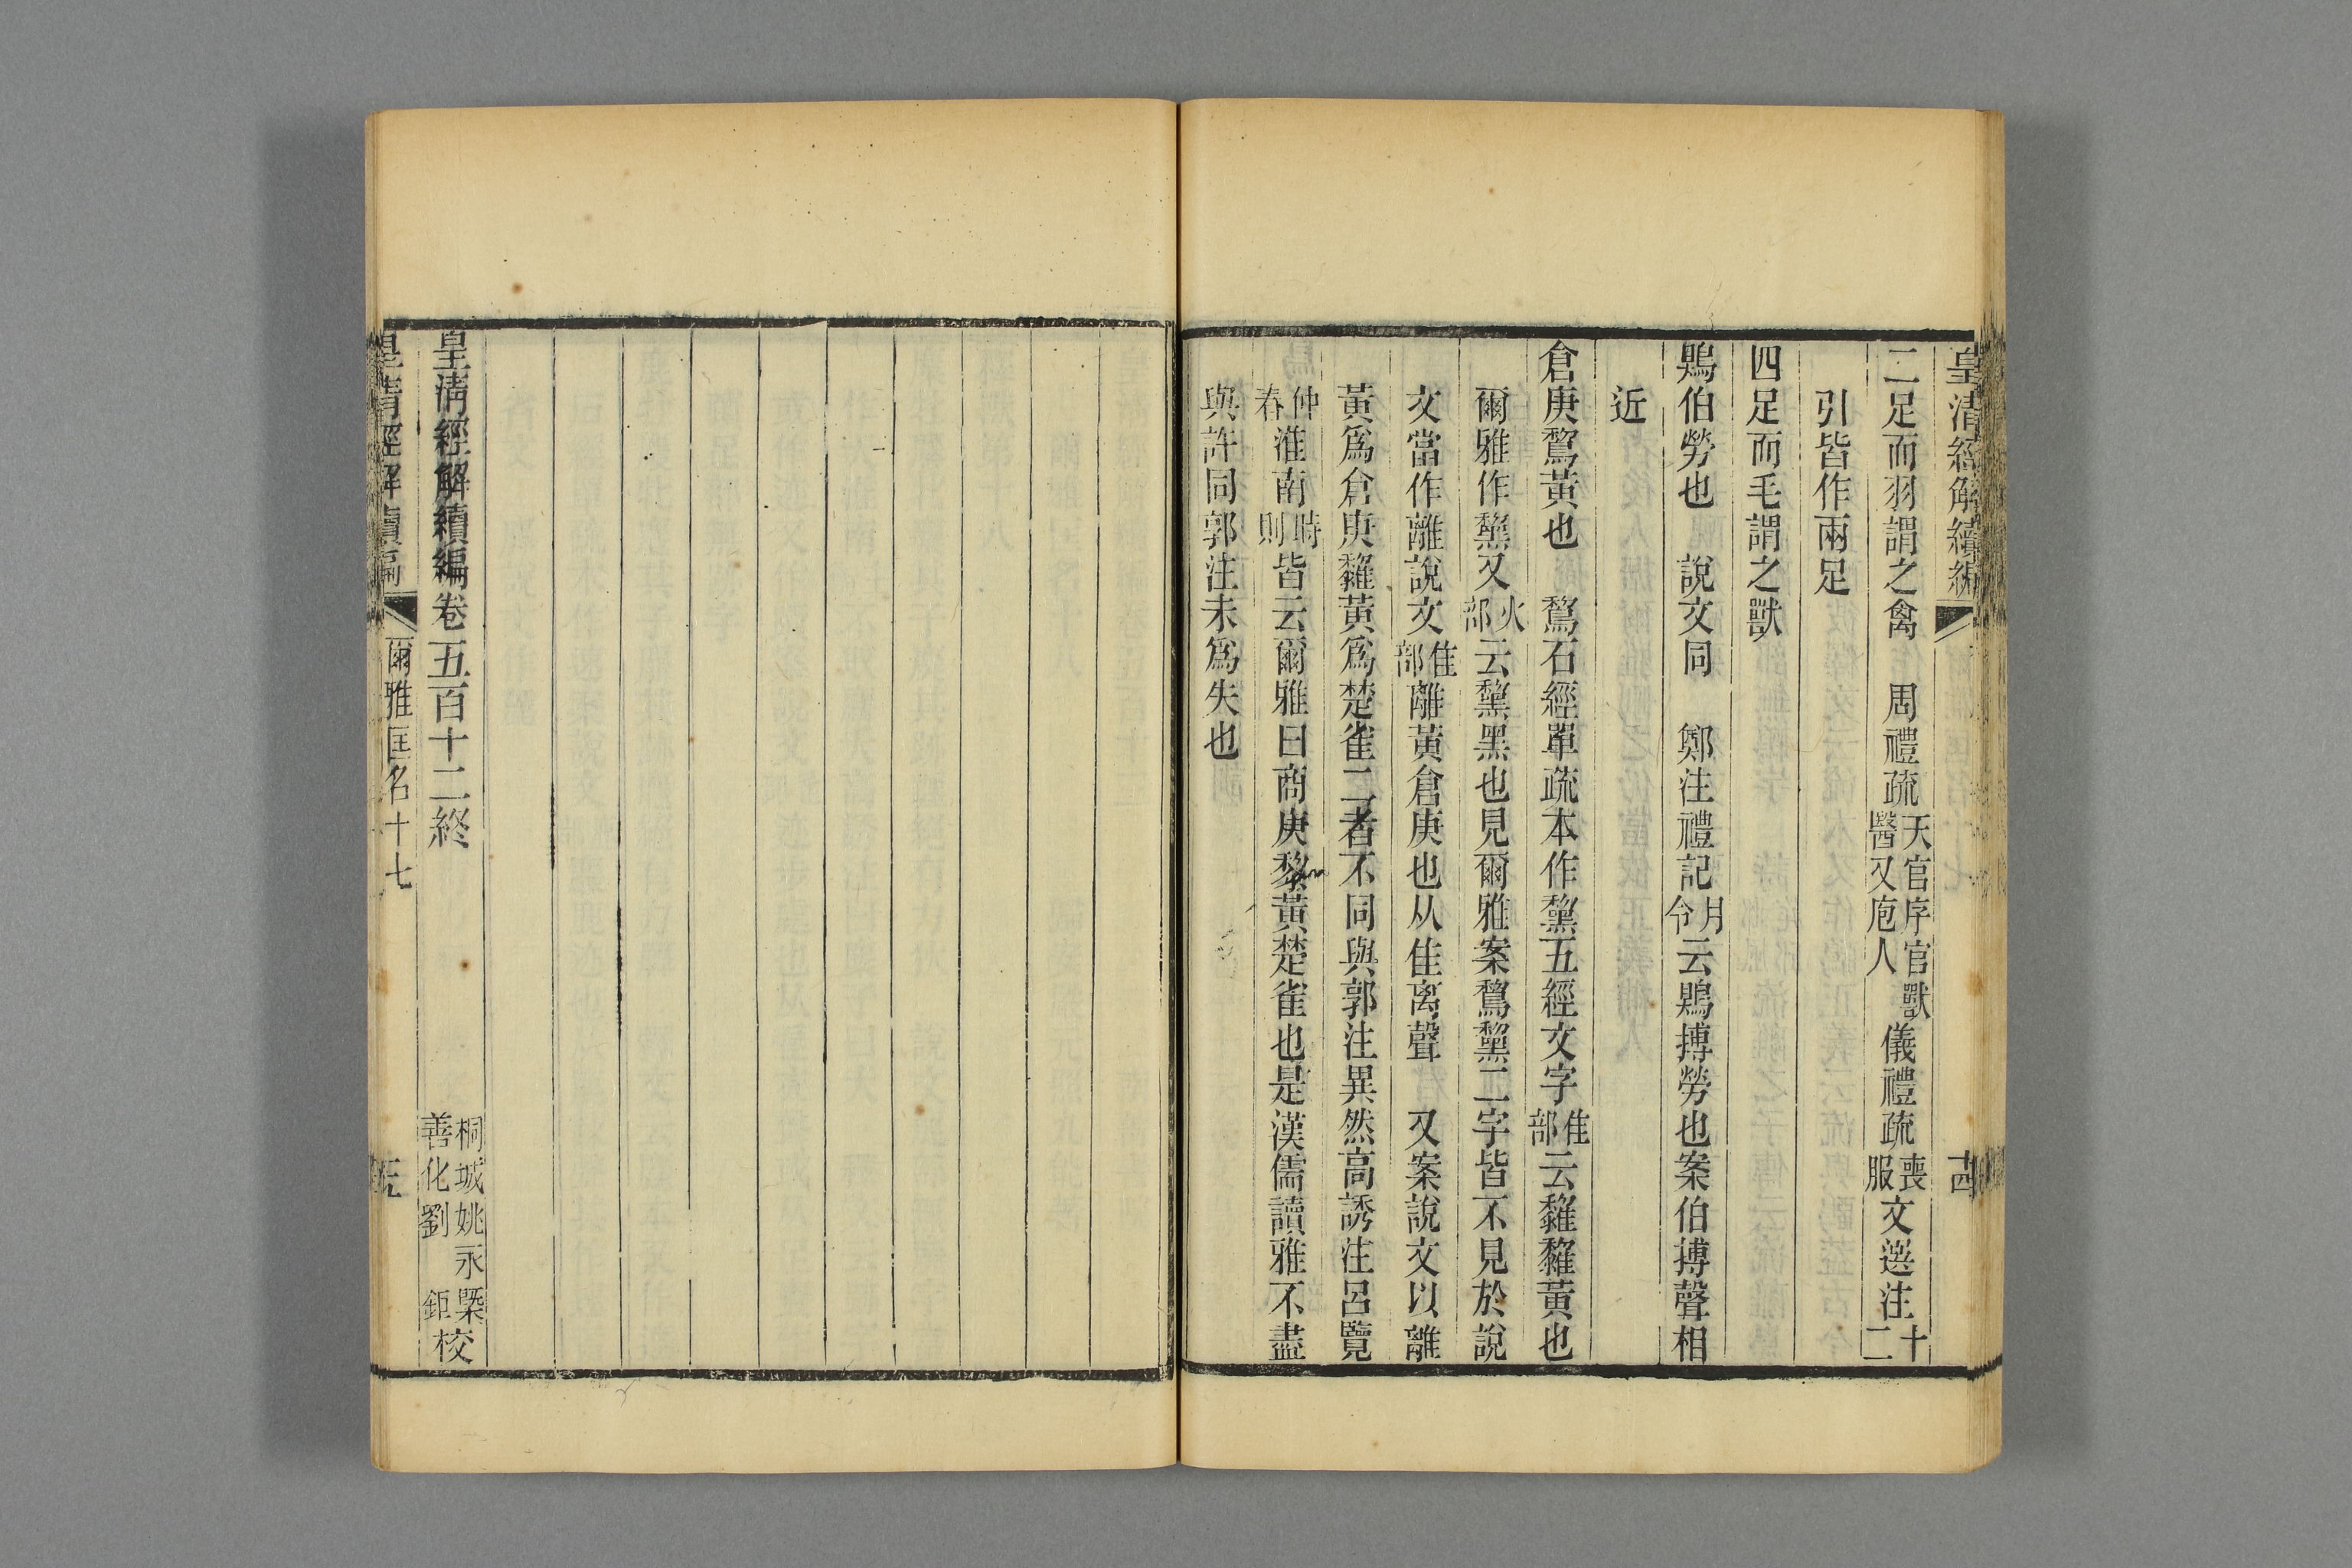 皇清經解續編
二足而羽謂之禽 周禮疏天官序官獸醫又庖人儀禮疏喪服文選注十二
引皆作兩足
四足而毛謂之獸
鶪伯勞也 說文同 鄭注禮記月令云鶪搏勞也案伯搏聲相
近
倉庚鵹黃也 鵹石經單疏本作鵹五經文字隹部云雡雡黃也
爾雅作鵹又火部云黧黑也見爾雅案鵹黧二字皆不見於說
文當作離說文隹部離黃倉庚也从隹离聲 又案說文以離
黃爲倉庚雡黃爲楚雀二者不同與郭注異然高誘注呂覽
仲春淮南時則皆云爾雅曰商庚黎黃楚雀也是漢儒讀雅不盡
與許同郭注未爲失也
皇清經解續編卷五百十二終
桐城姚永㮣善化劉 鉅校
皇清經解續編 爾雅匡名十七